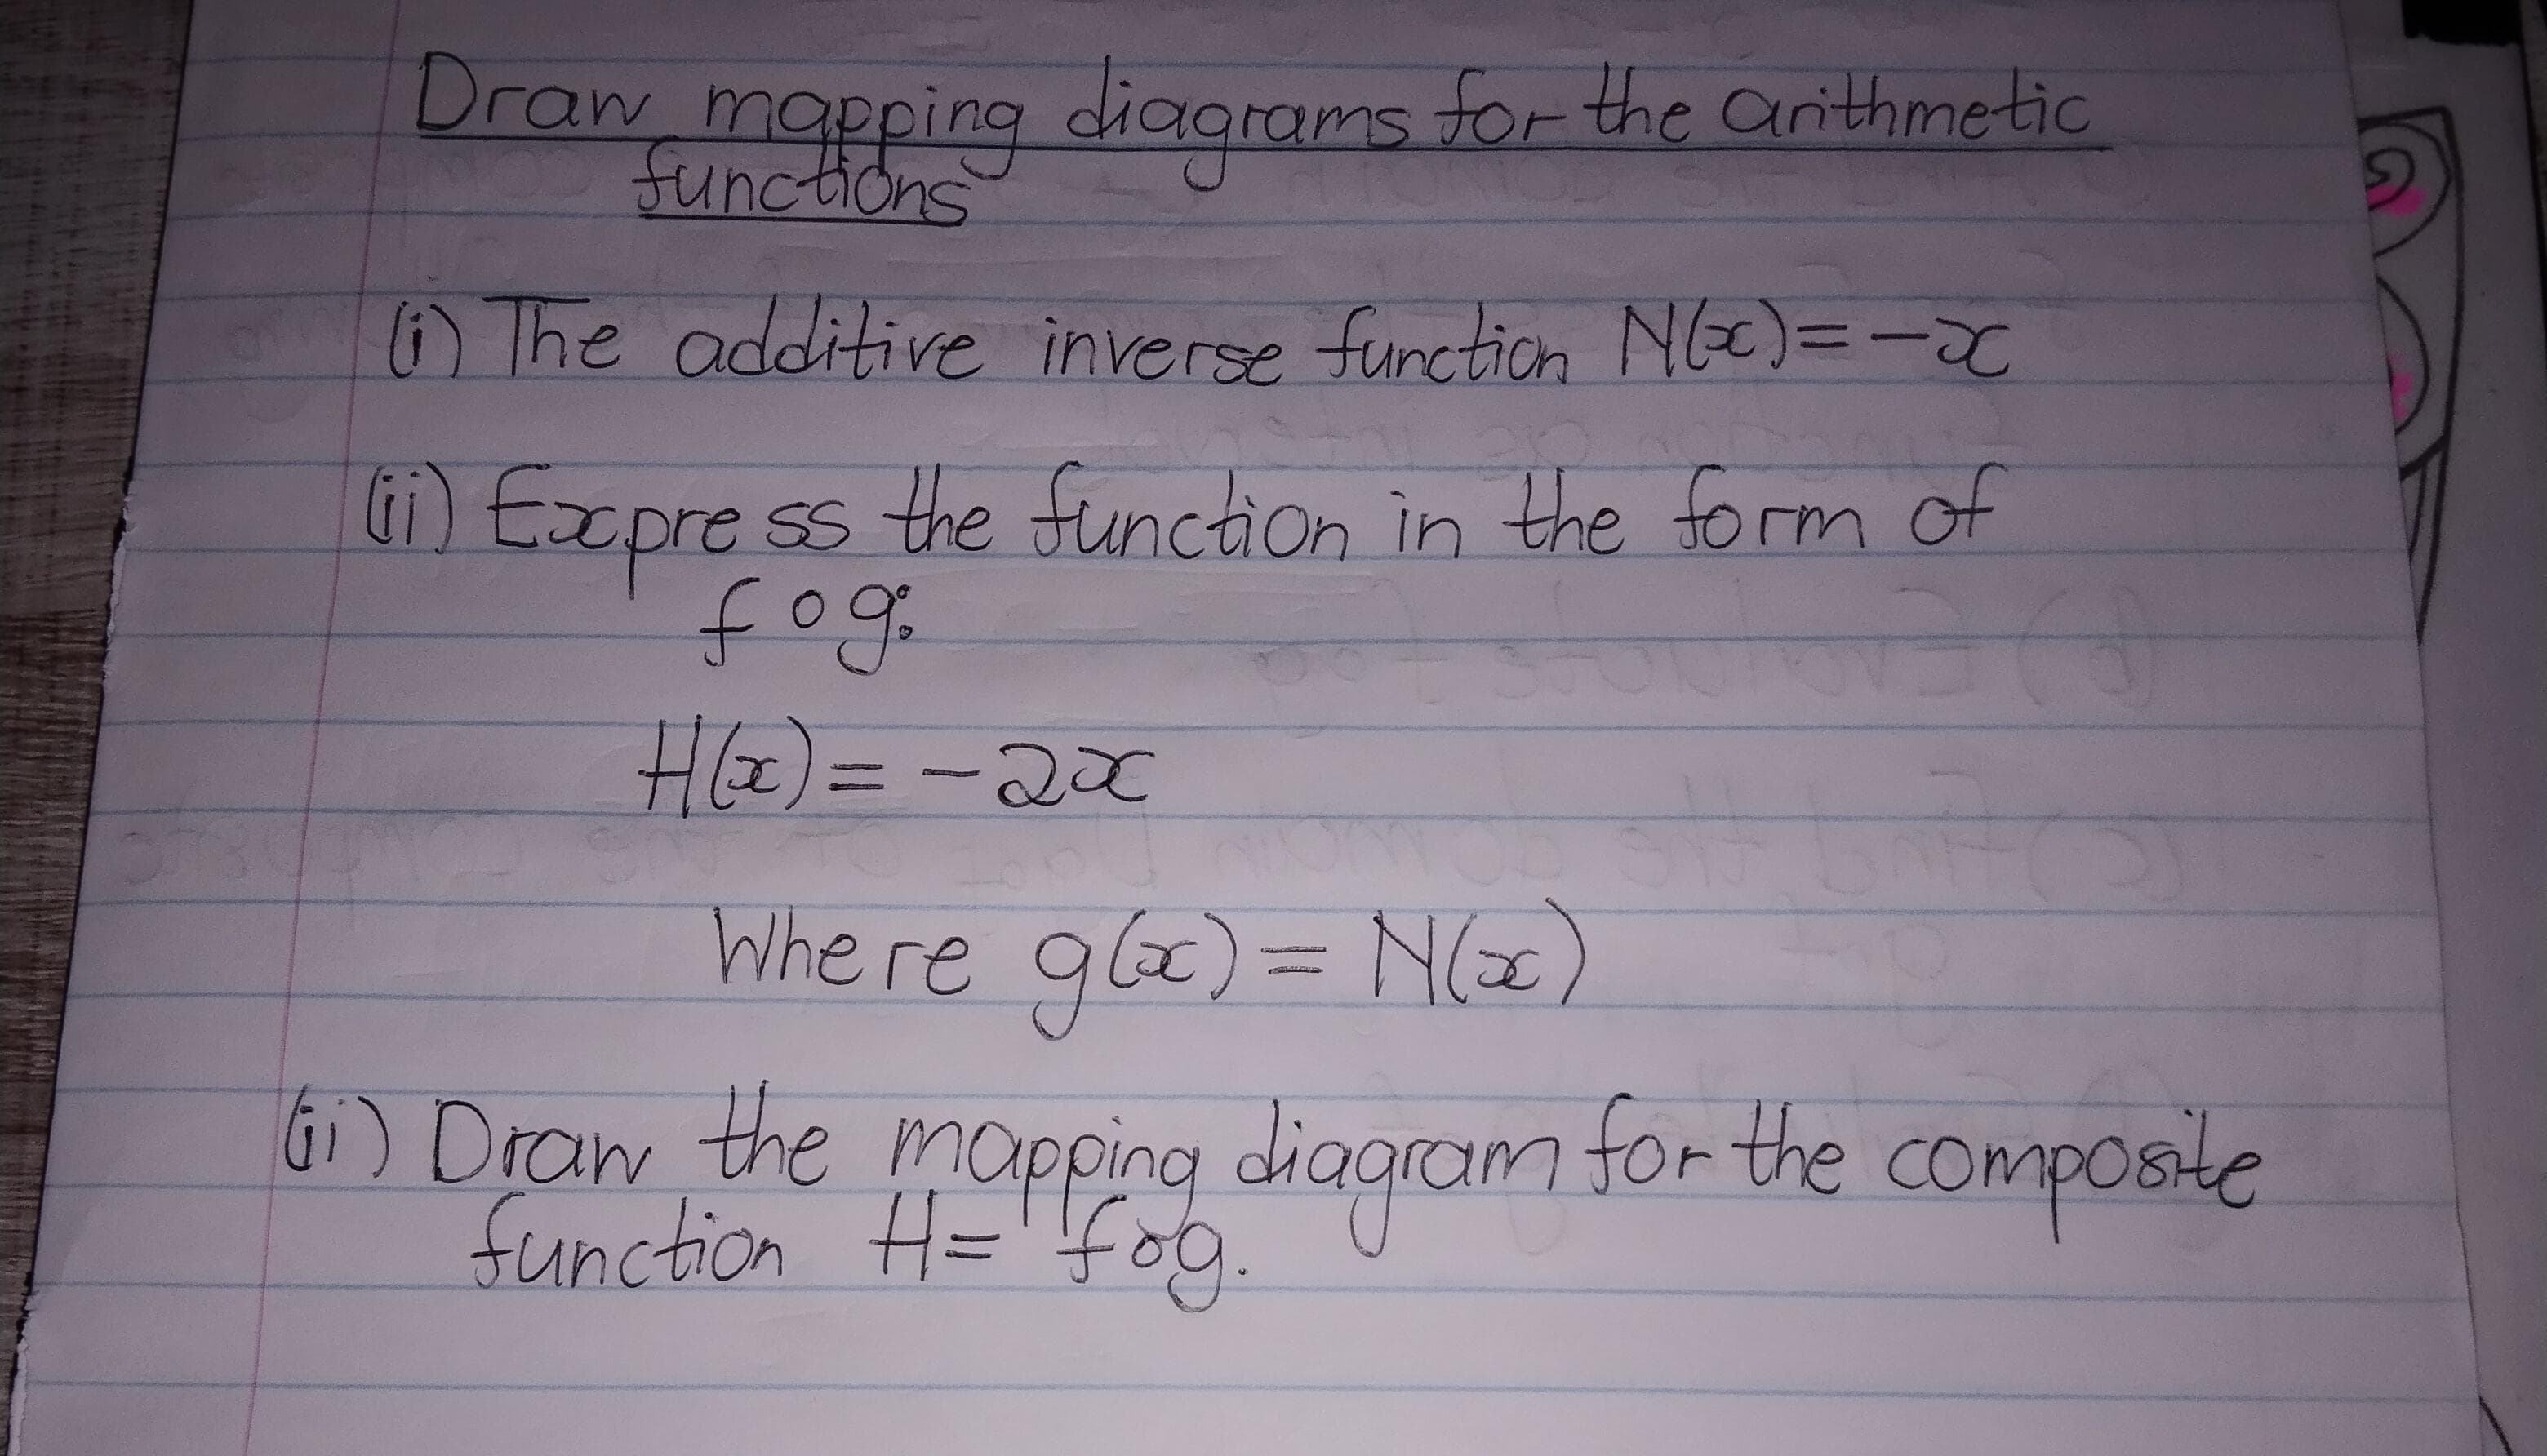 Draw mapping diagrams for the arithmetic
functions
(i) The additive inverse function N(x) = -x
(ii) Express the function in the form of
f o g:
H(x) = -2x
Where g(x) = N(x)
(ii) Draw the mapping diagram for the composite
function H = fog.